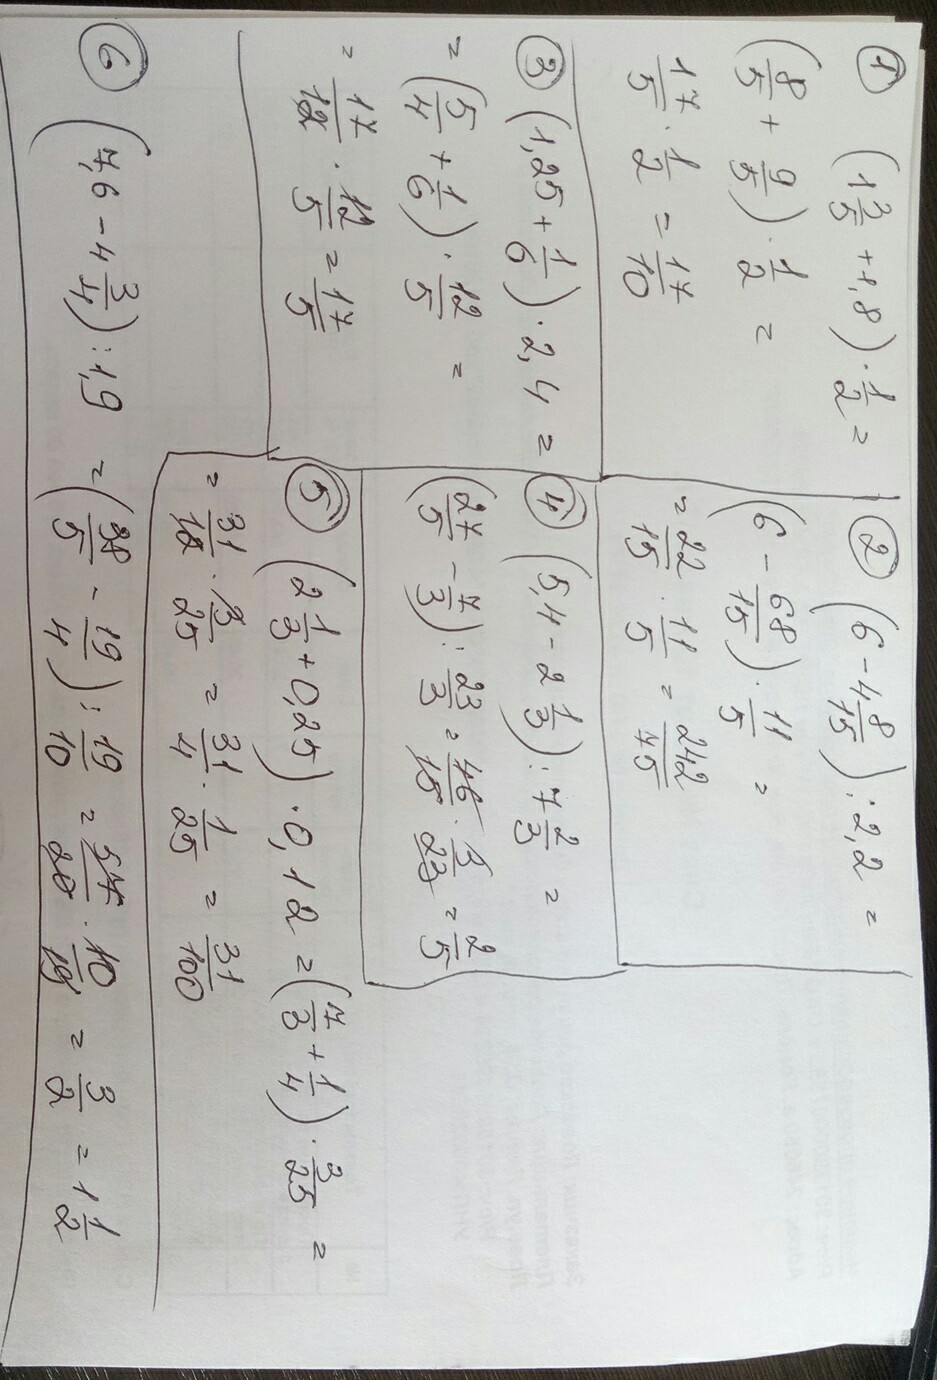 ① (1 3/5 + 1,8) · 1/2 =
(8/5 + 9/5) · 1/2 =
17/5 · 1/2 = 17/10
② (6 - 4 8/15) : 2,2 =
(6 - 68/15) · 11/5 =
= 22/15 · 11/5 = 242/75
③ (1,25 + 1/6) · 2,4 =
= (5/4 + 1/6) · 12/5 =
= 17/12 · 12/5 = 17/5
④ (5,4 - 2 1/3) : 7 2/3 =
(27/5 - 7/3) : 23/3 = 46/15 · 3/23 = 2/5
⑤ (2 1/3 + 0,25) · 0,12 = (7/3 + 1/4) · 3/25 =
= 31/12 · 3/25 = 31/4 · 1/25 = 31/100
⑥ (7,6 - 4 3/4) : 1,9 = (38/5 - 19/4) : 19/10 = 57/20 · 10/19 = 3/2 = 1 1/2